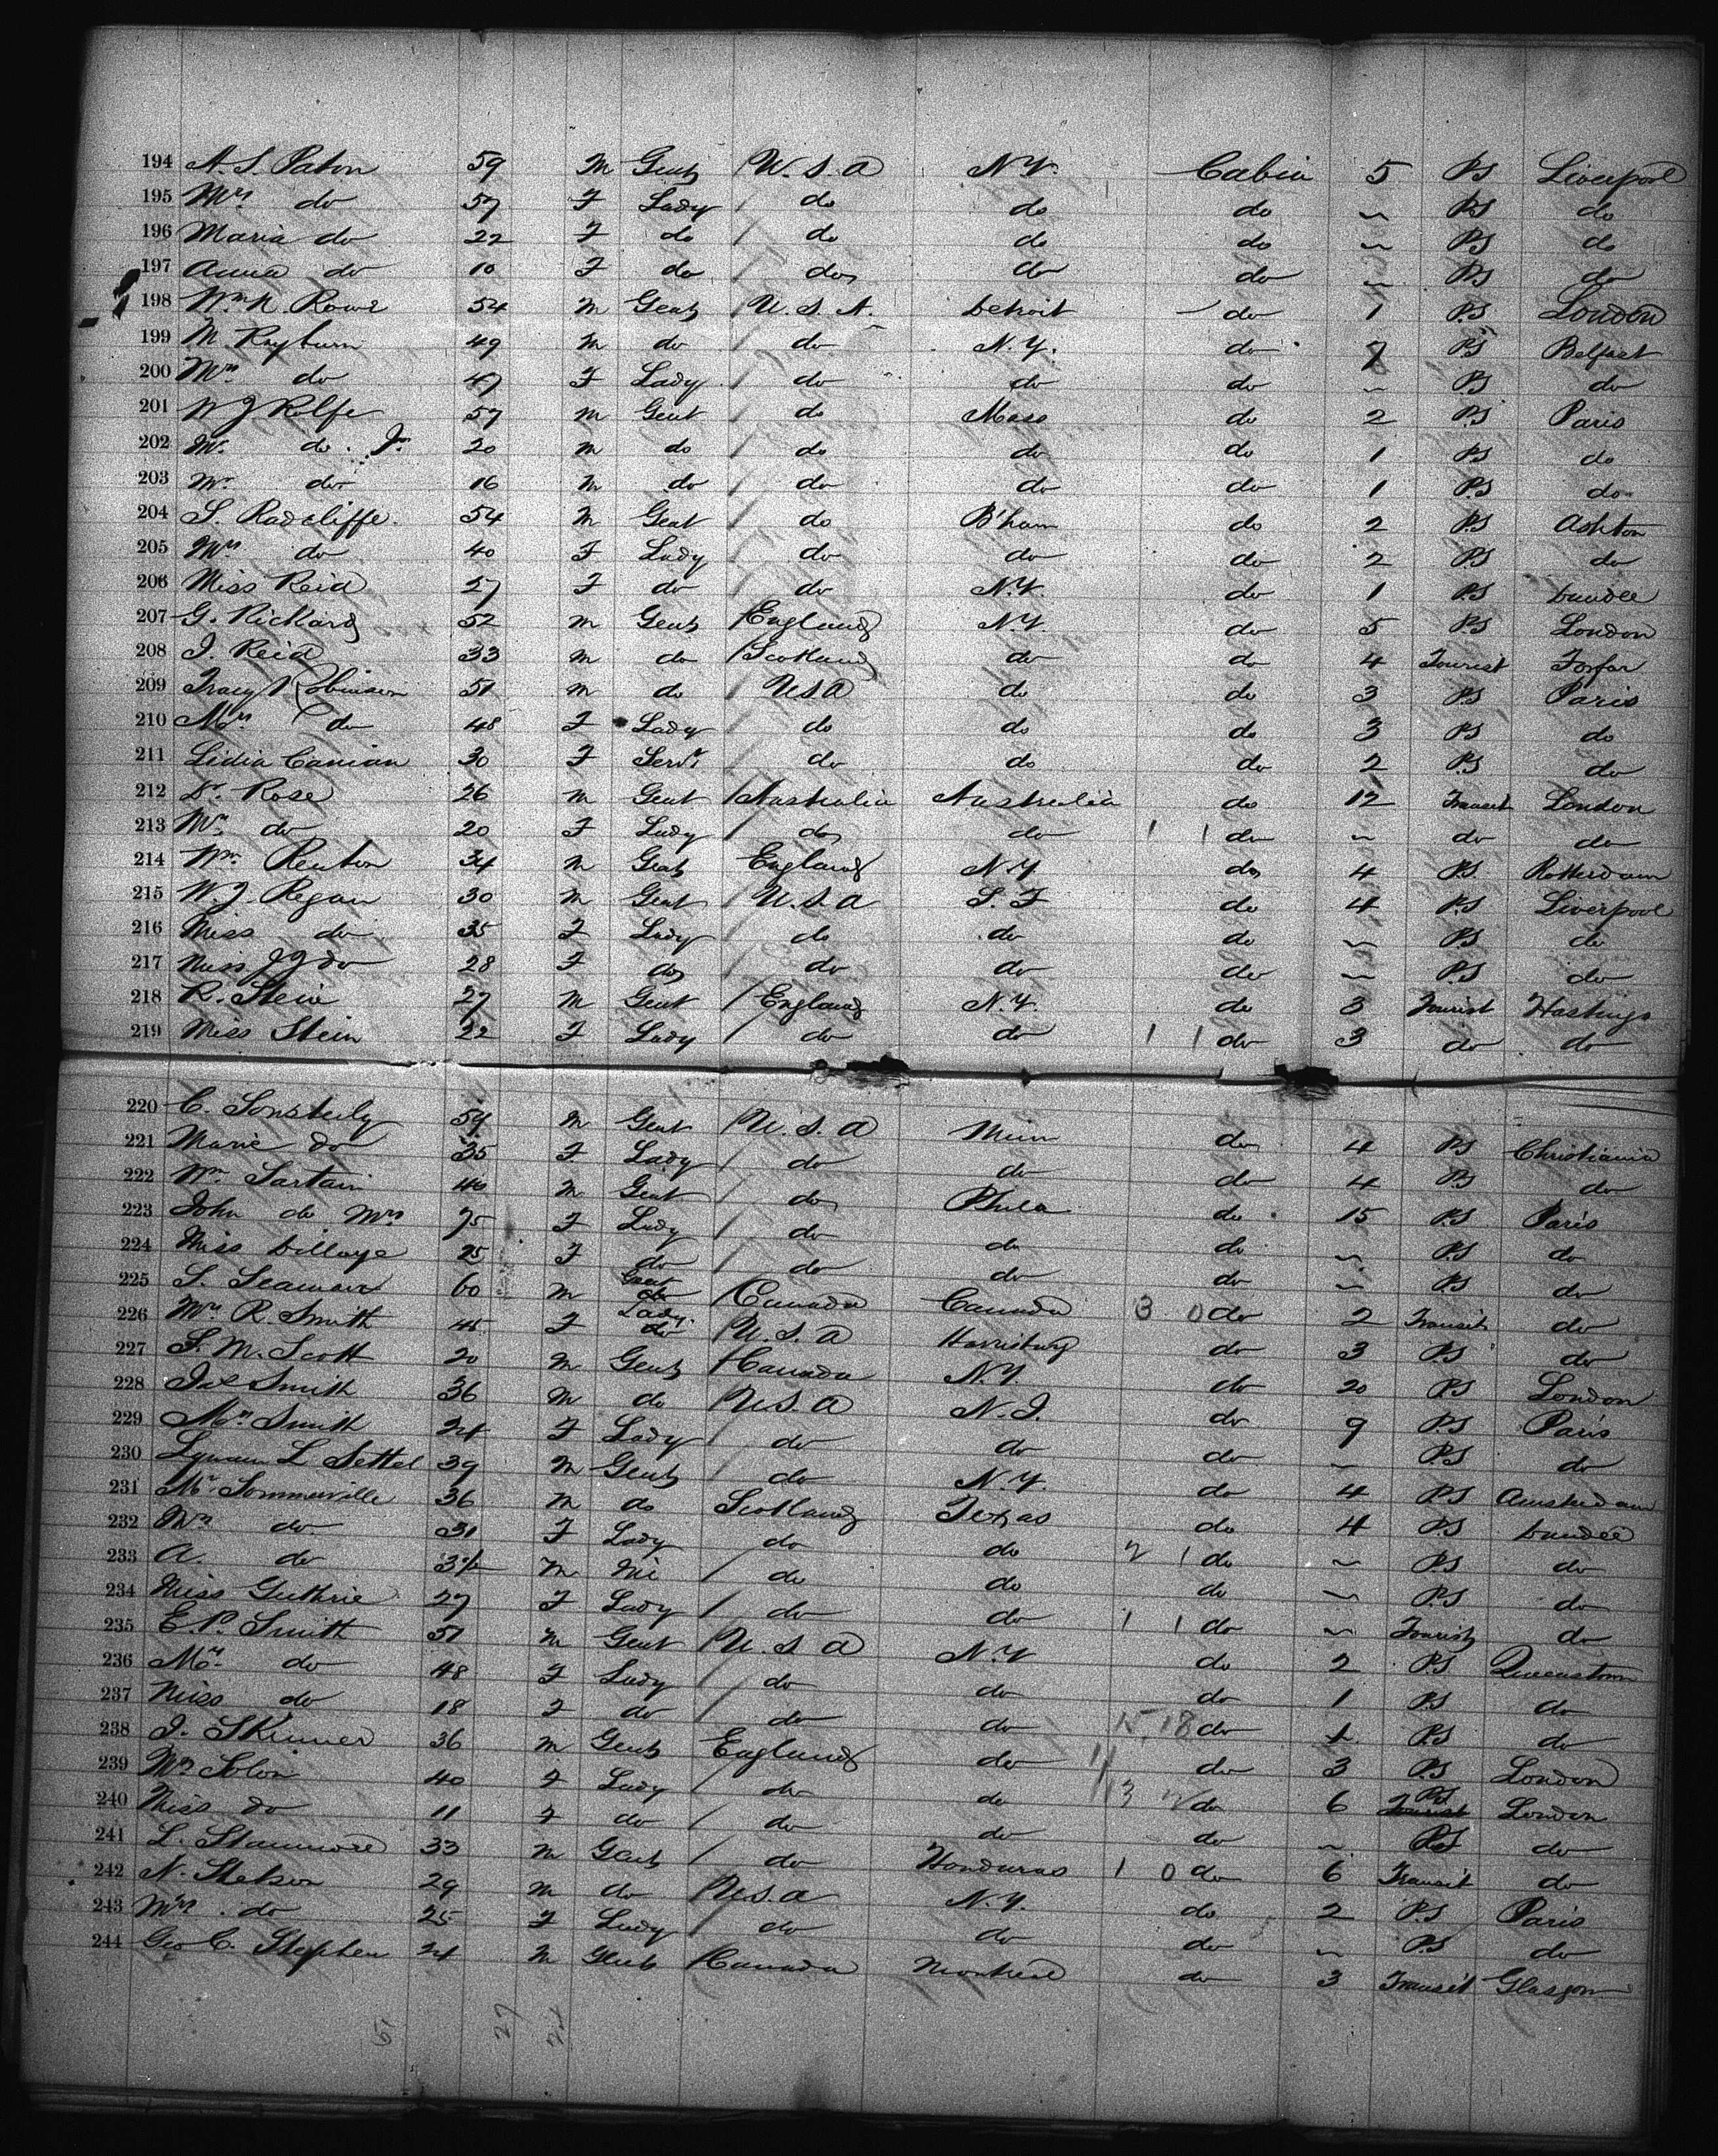 194 A. S. Paton 59 M Gent U.S.A N.Y. Cabin 5 P.S Liverpool
195 Mrs do 57 F Lady do do do ~ P.S do
196 Maria do 22 F do do do do ~ P.S do
197 Anna do 10 F do do do do ~ P.S do
198 Wm. N. Rowe 54 M Gent U.S.A. Detroit do 1 P.S London
199 M. Rayburn 49 M do do N.Y. do 7 P.S Belfast
200 Mrs do 47 F Lady do do do ~ P.S do
201 W J Rolfe 57 M Gent do Mass do 2 P.S Paris
202 Mr. do. Jr. 20 M do do do do 1 P.S do
203 Mr. do 16 M do do do do 1 P.S do
204 S. Radcliffe. 54 M Gent do B'ham do 2 P.S Ashton
205 Mrs do 40 F Lady do do do 2 P.S do
206 Miss Reid 27 F do do N.Y. do 1 P.S Dundee
207 G. Rickard 52 M Gent England N.Y. do 5 P.S London
208 J. Reid 33 M do Scotland do do 4 Tourist Forfar
209 Tracy Robinson 51 M do USA do do 3 P.S Paris
210 Mrs do 48 F Lady do do do 3 P.S do
211 Lidia Canian 30 F Servt do do do 2 P.S do
212 Dr. Rose 26 M Gent Australia Australia do 12 Transit London
213 Mrs do 20 F Lady do do 1 1 do ~ do do
214 Wm. Renton 34 M Gent England N.Y. do 4 P.S. Rotterdam
215 W. J. Regan 30 M Gent U.S.A S.F do 4 P.S Liverpool
216 Miss do 35 F Lady do do do ~ P.S do
217 Miss J G do 28 F do do do do ~ P.S do
218 R. Stein 27 M Gent England N.Y. do 3 Tourist Hastings
219 Miss Stein 22 F Lady do do 1 1 do 3 do do
220 C. 54 M Gent U.S.A Minn do 4 P.S Christiania
221 Marie do 35 F Lady do do do 4 P.S do
222 Wm Sartain 40 M Gent do Phila do 15 P.S Paris
223 John do Mrs 75 F Lady do do do ~ P.S do
224 Miss Dillaye 25 F do do do do ~ P.S do
225 S. Seaman 60 M Gent do Canada Canada 3 0 do 2 Transit do
226 Mrs R. Smith 45 F Lady. do U.S.A Harrisburg do 3 P.S do
227 S. M. Scott 20 M Gent Canada N.Y. do 20 P.S London
228 Jas Smith 36 M do U.S.A N.J. do 9 P.S Paris
229 Mrs Smith 24 F Lady do do do ~ P.S do
230 Lyman L Settel 39 M Gent do N.Y. do 4 P.S Amsterdam
231 Mr Sommerville 36 M do Scotland Texas do 4 P.S Dundee
232 Mrs do 31 F Lady do do 2 1 do ~ P.S do
233 A. do 3½ M do do do ~ P.S do
234 Miss Guthrie 27 F Lady do do 1 1 do ~ Tourist do
235 E. P. Smith 51 M Gent U.S.A N.Y do 2 P.S Queenstown
236 Mrs. do 48 F Lady do do do 1 P.S do
237 Miss do 18 F do do do 15 18 do 1 P.S do
238 J. Skinner 36 M Gent England do do 3 P.S London
239 Mrs Solon 40 F Lady do do 3 do 6 P.S Tourist London
240 Miss do 11 F do do do do ~ P.S do
241 L. Stanmore 33 M Gent do Honduras 1 0 do 6 Transit do
242 N. Stetson 29 M do U.S.A N.Y. do 2 P.S Paris
243 Mrs. do 25 F Lady do do do ~ P.S do
244 Geo C. Stephen 24 M Gent Canada Montreal do 3 Transit Glasgow
51 27 24